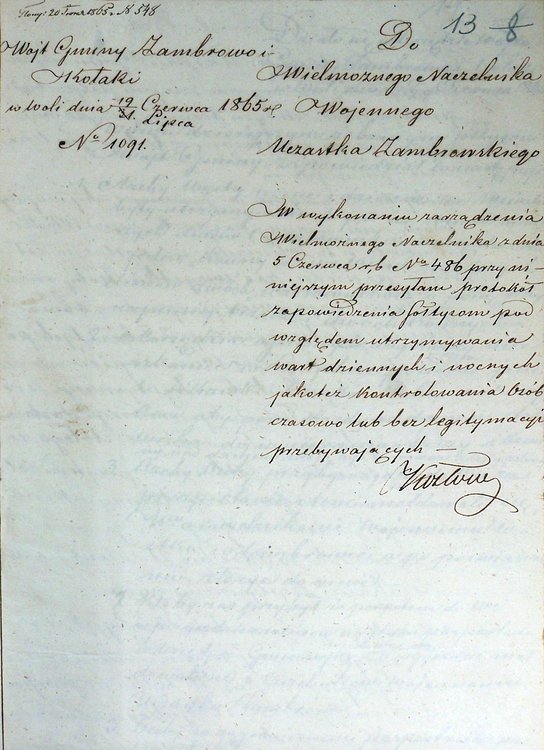 1865 N 548
13 8
Wojt Gminy Zambrowo i
Kołaki
w woli dnia 19/1 Czerwca/Lipca 1865 r
No 1091.
Do
Wielmożnego Naczelnika
Wojennego
Uczastka Zambrowskiego
W wykonaniu zarządzenia
Wielmożnego Naczelnika z dnia
5 Czerwca r b No 486 przy ni-
niejszym przesyłam protokół
zapowiedzenia sołtysom pod
względem utrzymywania
wart dziennych i nocnych
jakoteż kontrolowania Osób
czasowo lub bez legitymacyi
przebywających —